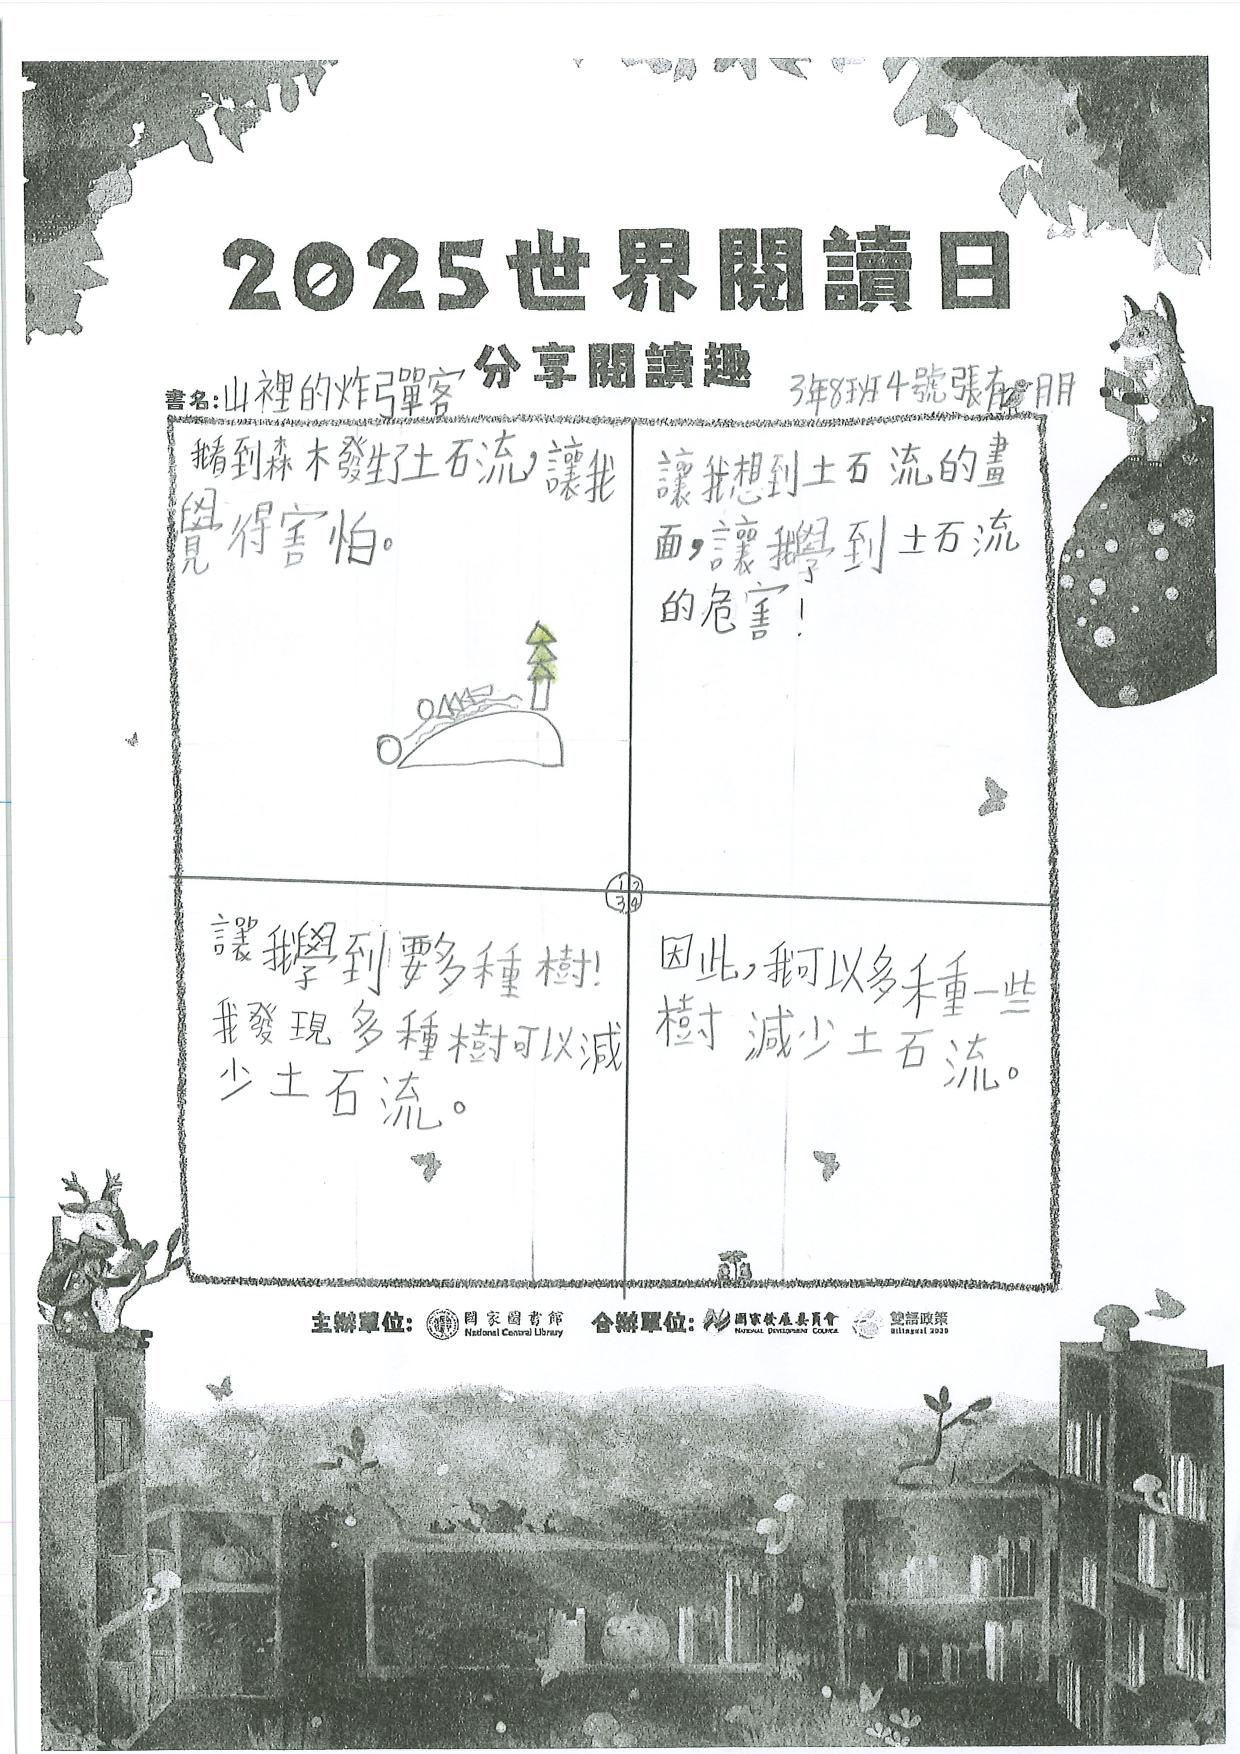 2025世界閱讀日
分享閱讀趣
書名:山裡的炸彈客
3年8班4號張有朋
我看到森木發生了土石流,讓我
覺得害怕。
讓我想到土石流的畫
面,讓我學到土石流
的危害!
1 2
3 4
讓我學到要多種樹!
我發現多種樹可以減
少土石流。
因此,我可以多種一些
樹減少土石流。
主辦單位: 國家圖書館 National Central Library 合辦單位: 國家發展委員會 NATIONAL DEVELOPMENT COUNCIL 雙語政策 Bilingual 2030